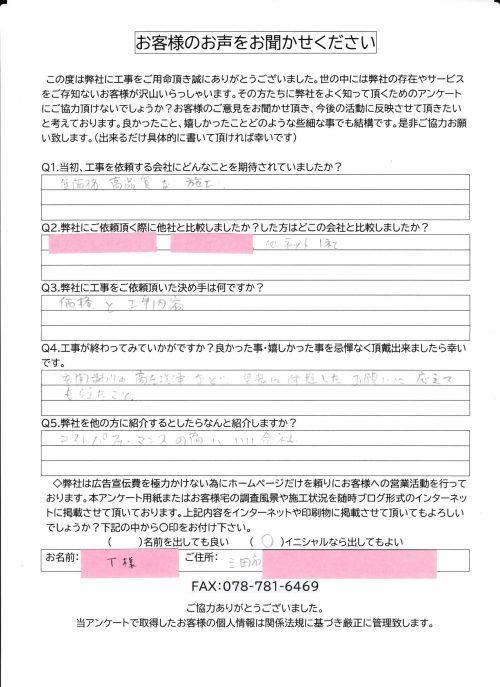 お客様のお声をお聞かせください
この度は弊社に工事をご用命頂き誠にありがとうございました。世の中には弊社の存在やサービス
をご存知ないお客様が沢山いらっしゃいます。その方たちに弊社をよく知って頂くためのアンケート
にご協力頂けないでしょうか？お客様のご意見をお聞かせ頂き、今後の活動に反映させて頂きたい
と考えております。良かったこと、嬉しかったことどのような些細な事でも結構です。是非ご協力お願
い致します。(出来るだけ具体的に書いて頂ければ幸いです)
Q1.当初、工事を依頼する会社にどんなことを期待されていましたか？
低価格 高品質な 施工.
Q2.弊社にご依頼頂く際に他社と比較しましたか？した方はどこの会社と比較しましたか？
他 ネット 1社
Q3.弊社に工事をご依頼頂いた決め手は何ですか？
価格 と 工事内容
Q4.工事が終わってみていかがですか？良かった事・嬉しかった事を忌憚なく頂戴出来ましたら幸い
です。
玄関周りの高圧洗浄 など、 お願いに 応えて
もらえたこと.
Q5.弊社を他の方に紹介するとしたらなんと紹介しますか？
コストパフォーマンスの高い いい会社
◇弊社は広告宣伝費を極力かけない為にホームページだけを頼りにお客様への営業活動を行って
おります。本アンケート用紙またはお客様宅の調査風景や施工状況を随時ブログ形式のインターネッ
トに掲載させて頂いております。上記内容をインターネットや印刷物に掲載させて頂いてもよろしい
でしょうか？下記の中から〇印をお付け下さい。
(　　)名前を出しても良い　(〇)イニシャルなら出してもよい
お名前: T 様 ご住所: 三田市
FAX:078-781-6469
ご協力ありがとうございました。
当アンケートで取得したお客様の個人情報は関係法規に基づき厳正に管理致します。